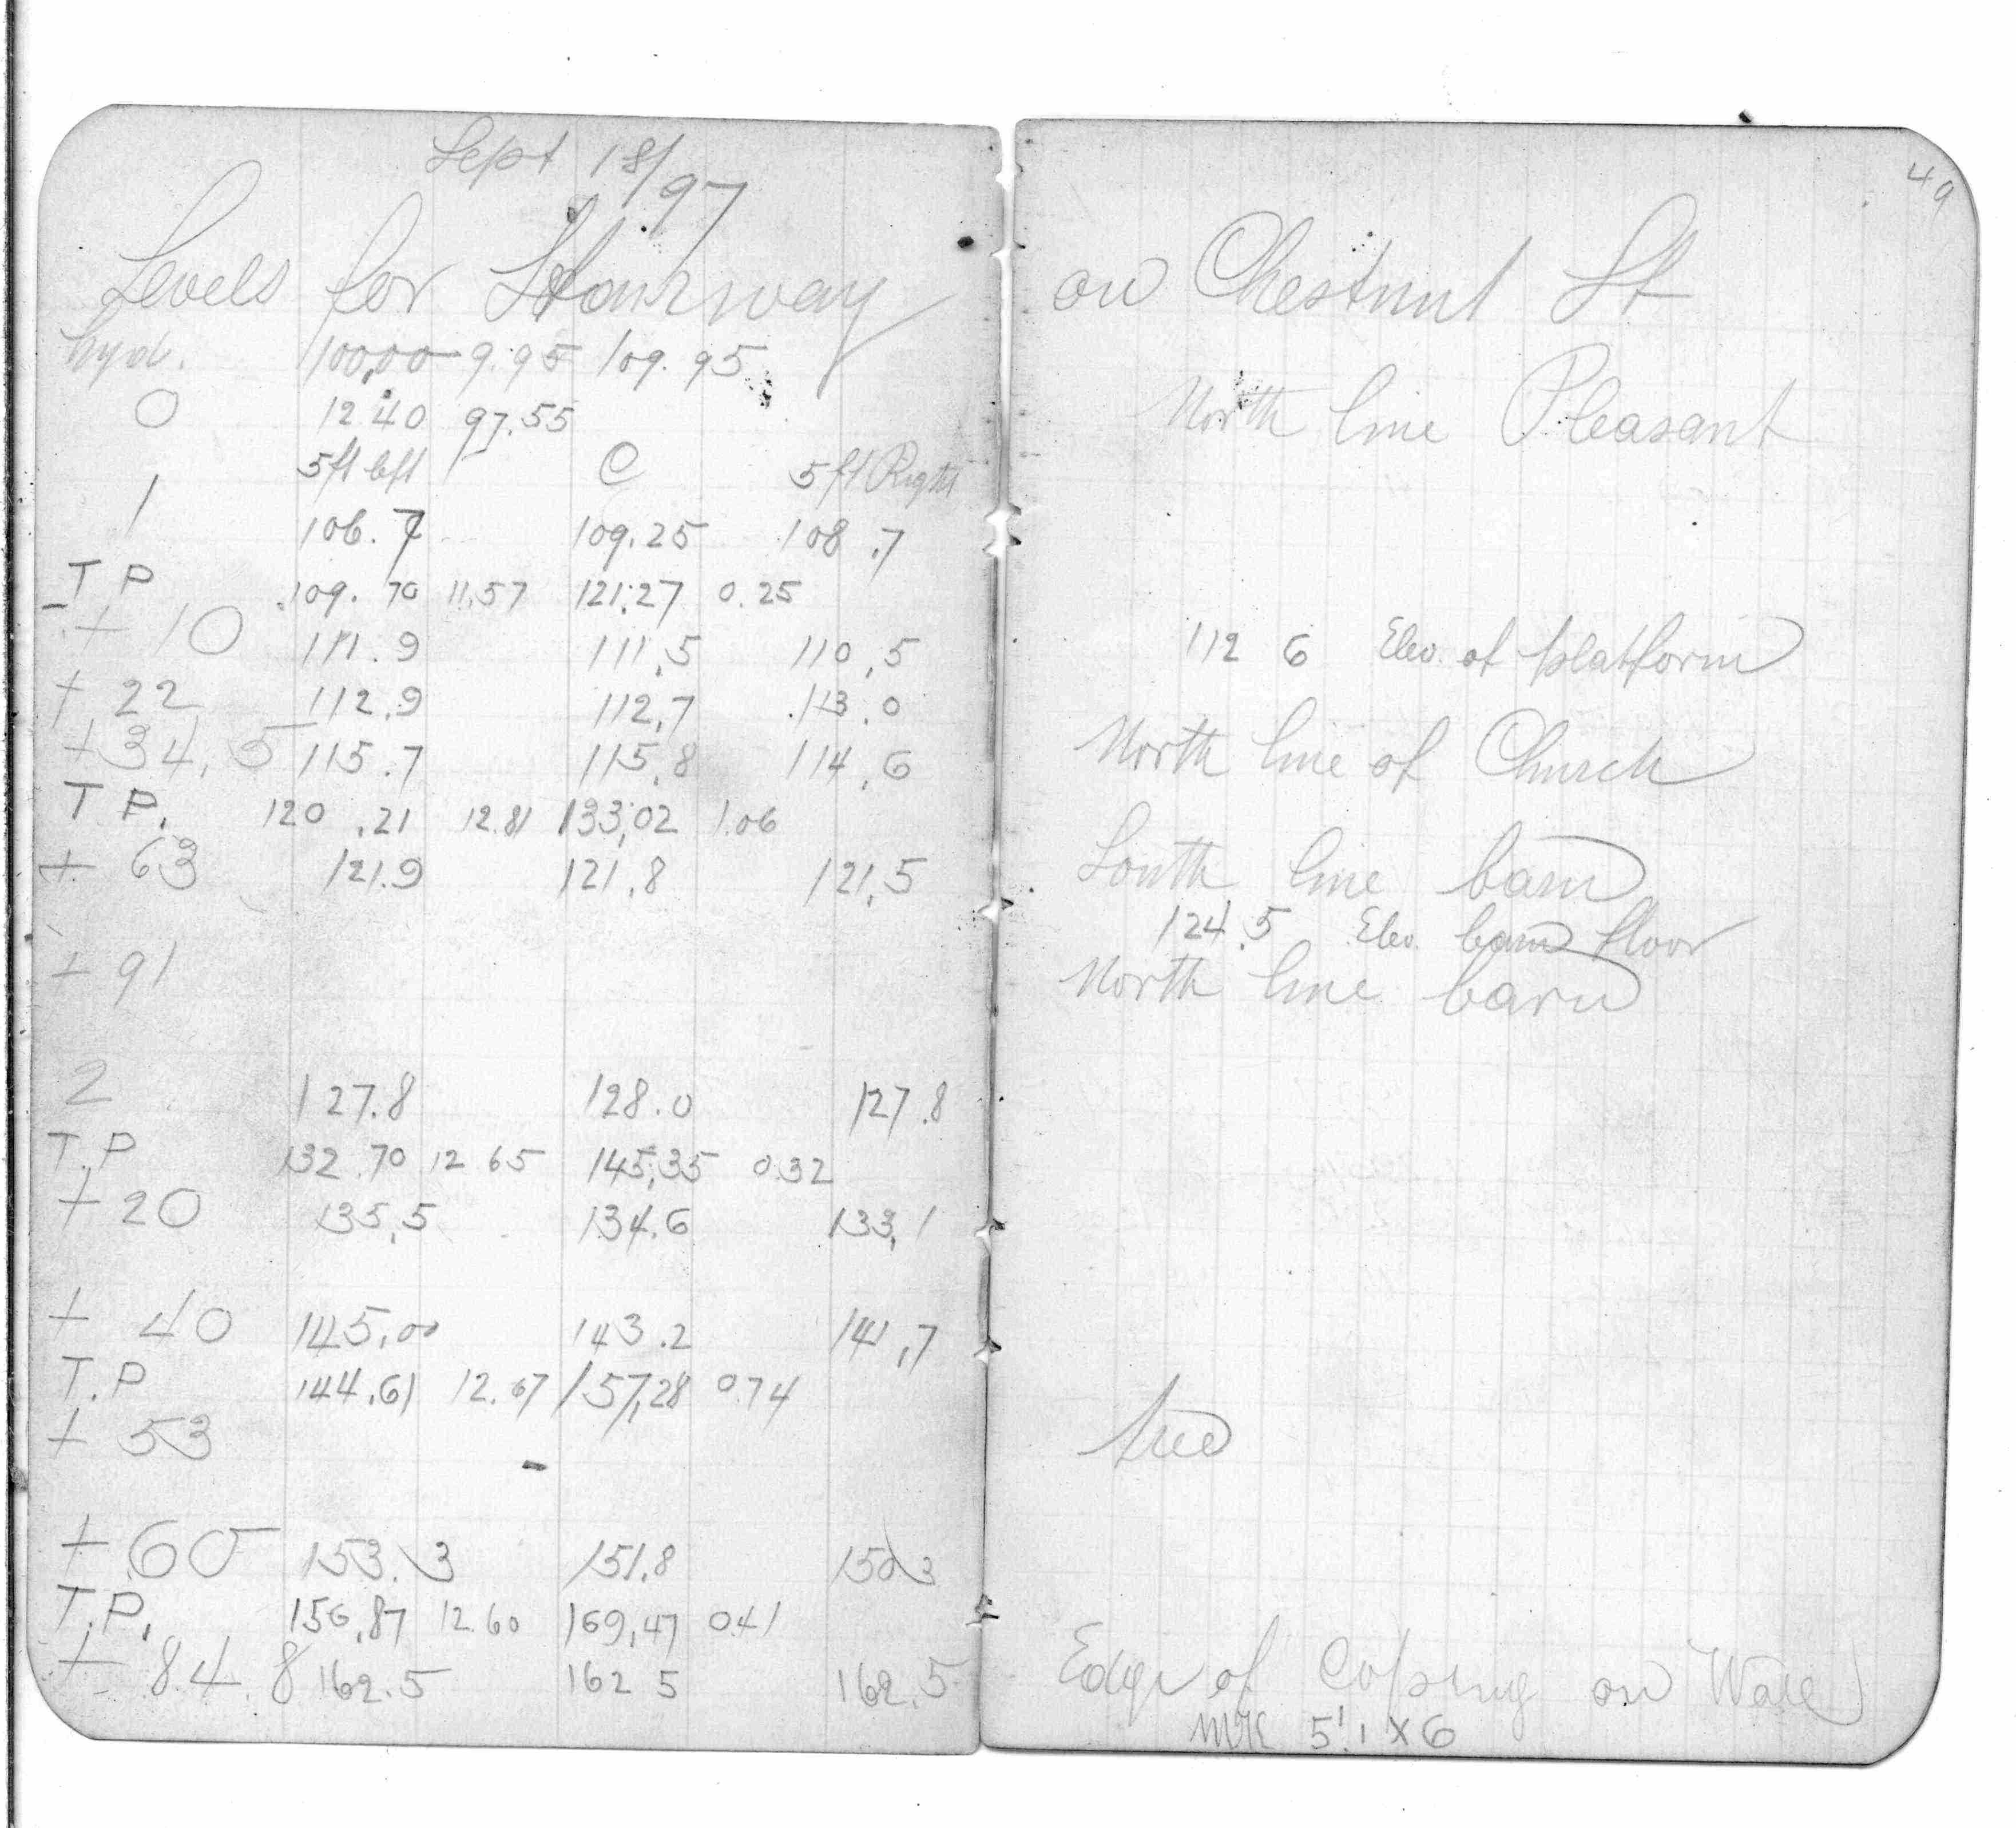 Sept 18/97
Levels for Stairway
hyd. 100.00 9.95 109.95
0 12.40 97.55
5 ft left C 5 ft Right
1 106.7 109.25 108.7
T P 109.70 11.57 121.27 0.25
+ 10 111.9 111.5 110.5
+ 22 112.9 112.7 113.0
+34.5 115.7 115.8 114.6
T.P. 120.21 12.81 133.02 1.06
+ 63 121.9 121.8 121.5
+ 91
2 127.8 128.0 127.8
T.P 132.70 12 65 145.35 0.32
+ 20 135.5 134.6 133.1
+ 40 145.00 143.2 141.7
T.P 144.61 12.67 157.28 0.74
+ 53
+ 60 153.3 151.8 150.3
T.P. 156.87 12.60 169.47 0.41
+ 84.8 162.5 162 5 162.5
49
on Chestnut St
North line Pleasant
112 6 Elev. of platform
North line of Church
South line barn
124.5 Elev. barn floor
North line barn
tree
Edge of Coping on Wall
5.1 x 6